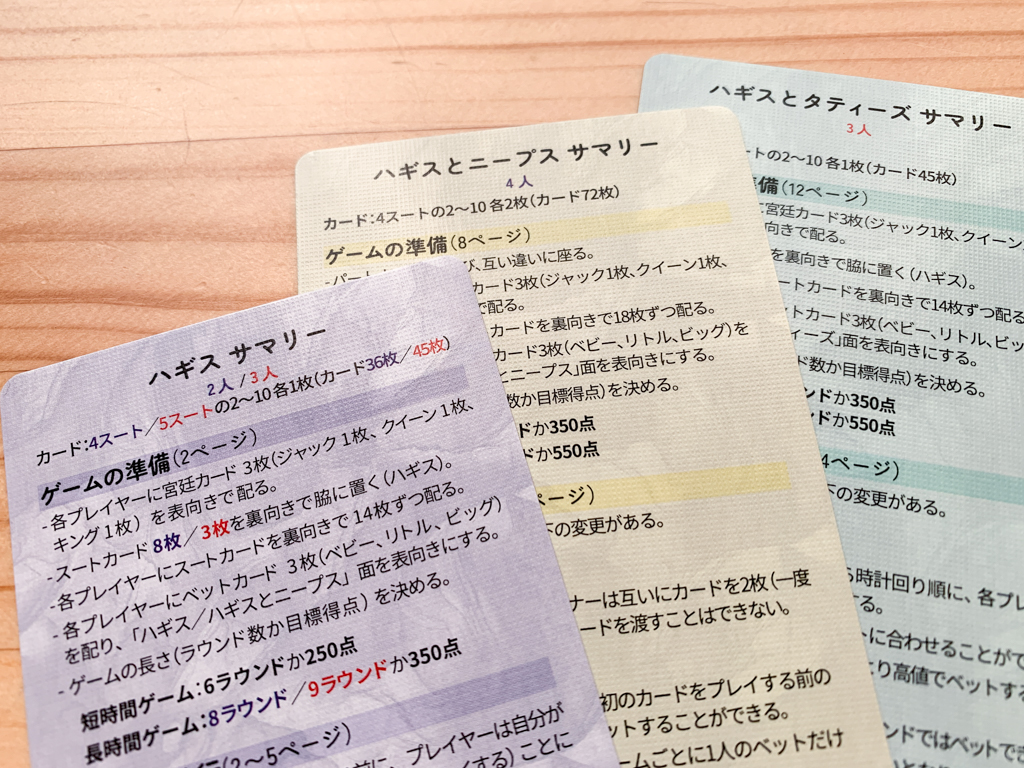 ハギス サマリー
2人 / 3人
カード:4スート/5スートの2〜10 各1枚(カード36枚/45枚)
ゲームの準備(2ページ)
- 各プレイヤーに宮廷カード 3枚(ジャック 1枚、クイーン 1枚、
キング 1枚) を表向きで配る。
- スートカード 8枚/3枚を裏向きで脇に置く(ハギス)。
- 各プレイヤーにスートカードを裏向きで 14枚ずつ配る。
- 各プレイヤーにベットカード 3枚(ベビー、リトル、ビッグ)
を配り、「ハギス/ハギスとニープス」面を表向きにする。
- ゲームの長さ(ラウンド数か目標得点) を決める。
短時間ゲーム:6ラウンドか250点
長時間ゲーム:8ラウンド/9ラウンドか350点
(2〜5ページ)
前に、プレイヤーは自分が
する) ことに
ハギスとニープス サマリー
4人
カード:4スートの2〜10 各2枚(カード72枚)
ゲームの準備(8ページ)
び、互い違いに座る。
カード3枚(ジャック1枚、クイーン1枚、
で配る。
カードを裏向きで18枚ずつ配る。
カード3枚(ベビー、リトル、ビッグ)を
とニープス」面を表向きにする。
数か目標得点)を決める。
ドか350点
ドか550点
ページ)
下の変更がある。
ナーは互いにカードを2枚(一度
ードを渡すことはできない。
初のカードをプレイする前の
ットすることができる。
ームごとに1人のベットだけ
ハギスとタティーズ サマリー
3人
ートの2〜10 各1枚(カード45枚)
備(12ページ)
に宮廷カード3枚(ジャック1枚、クイーン
向きで配る。
を裏向きで脇に置く(ハギス)。
ートカードを裏向きで14枚ずつ配る
ットカード3枚(ベビー、リトル、ビッ
ィーズ」面を表向きにする。
ド数か目標得点)を決める。
ンドか350点
ンドか550点
4ページ)
下の変更がある。
ら時計回り順に、各プレ
する。
トに合わせることがで
より高値でベットする
ンドではベットでき